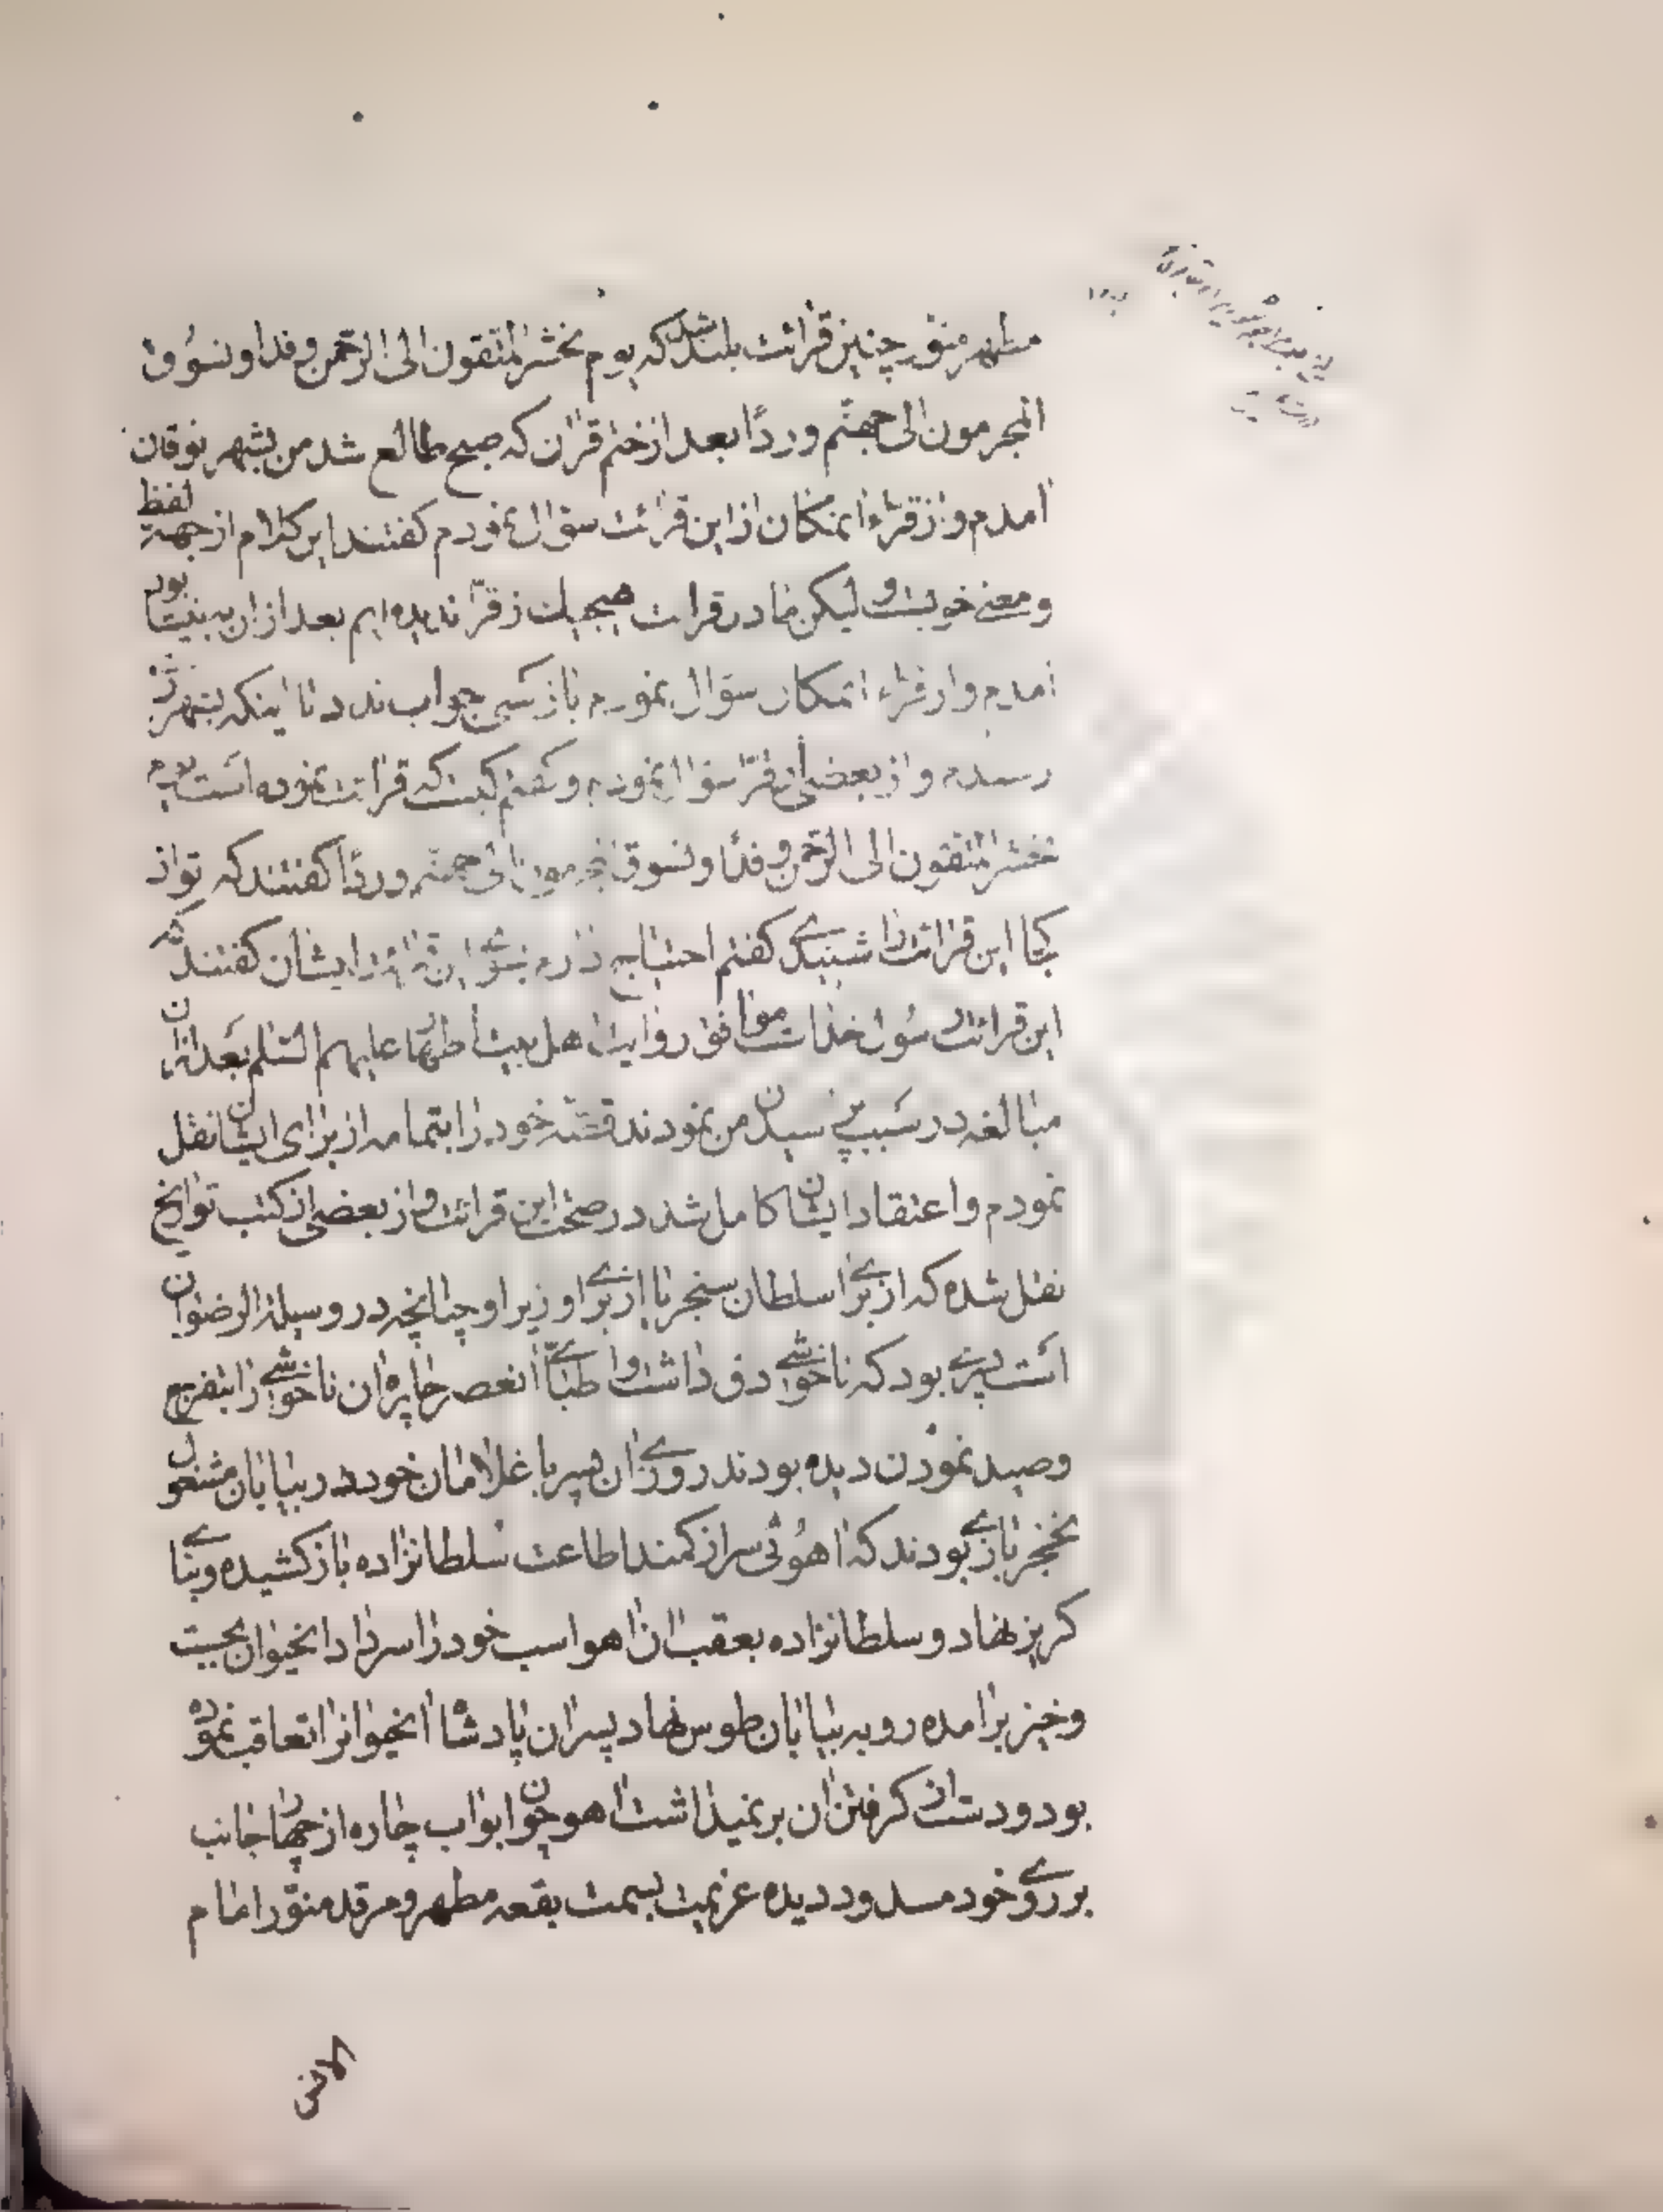 مطهر منوّر چنین قرائت بلند شد که یوم نحشر المتقون الی الرّحمن وفدا و نسُوق
المجرمون الی جهنّم وردًا بعد از ختم قران که صبح طالع شد من بشهر نوقان
امدم و از قرّاء انمکان از این قرائت سؤال نمودم کفتند این کلام از جهة لفظ
و معنے خوبست و لیکن ما در قرات هیچیک از قرّا ندیده ایم بعد از ان به نیشابور
امدم و از قرّاء انمکان سؤال نمودم باز کسی جواب نداد تا اینکه بشهر ری
رسیدم و از بعضی از قرّا سؤال نمودم و کفتم کیست که قرائت نموده است یوم
نحشر المتقون الی الرّحمن وفدًا و نسوق المجرمون الی جهنّم وردًا کفتند که تو از
کجا این قرائت را شنیدے کفتم احتیاج دارم بسوے این قرائت ایشان کفتند که
این قرائت رسُول خداست موافق روایت اهل بیت اطهار علیهم السّلم بعد از ان
مبالغه در سَبب پرسیدن من نمودند قصّه خود را بتمامه از برای ایشان نقل
نمودم و اعتقاد ایشان کامل شد در صحّت این قرائت و از بعضی از کتب تواریخ
نقل شده که از براے سلطان سنجر یا از براے وزیر او چنانچه در وسیلة الرضوان
است پسرے بود که ناخوشے دق داشت و اطبّاے انعصر چاره ان ناخوشے را بتفرج
و صید نموُدن دیده بودند روزے ان پسر با غلامان خود در بیابان مشغول
بخنجر بازے بودند که اهوُئی سر از کمند اطاعت سُلطانزاده باز کشیده و بناے
کریز نهاد و سلطانزاده بعقب ان اهو اسب خود را سر داد انحیوان بجست
و خیز برامده رو به بیابان طوس نهاد پسر ان پادشاه انحیوانرا تعاقب نموده
بود و دست از کرفتن ان برنمیداشت اهو چون ابواب چاره از چهار جانب
بر روے خود مسدود دیده عزیمت بسمت بقعه مطهر و مرقد منوّر امام